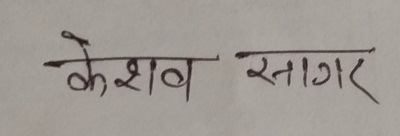 केशव सागर